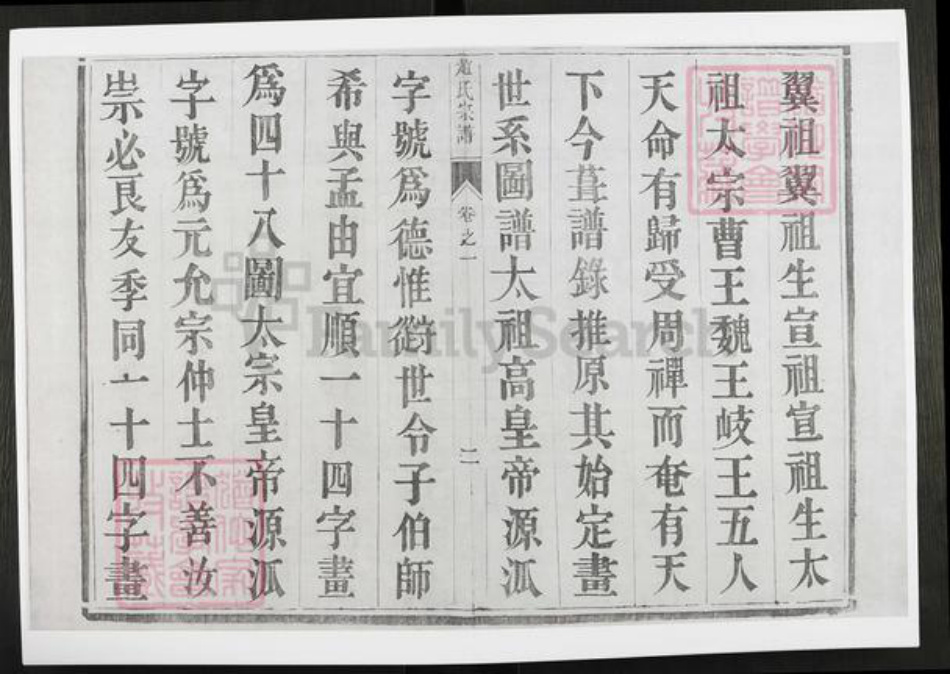 翼祖翼祖生宣祖宣祖生太
祖太宗曹王魏王岐王五人
天命有歸受周禪而奄有天
下今葺譜錄推原其始定畫
世系圖譜太祖高皇帝源派
趙氏宗譜
卷之一
二
字號爲德惟從世令子伯師
希與孟由宜順一十四字畫
爲四十八圖太宗皇帝源派
字號爲元允宗仲士不善汝
崇必良友季同一十四字畫
FamilySearch